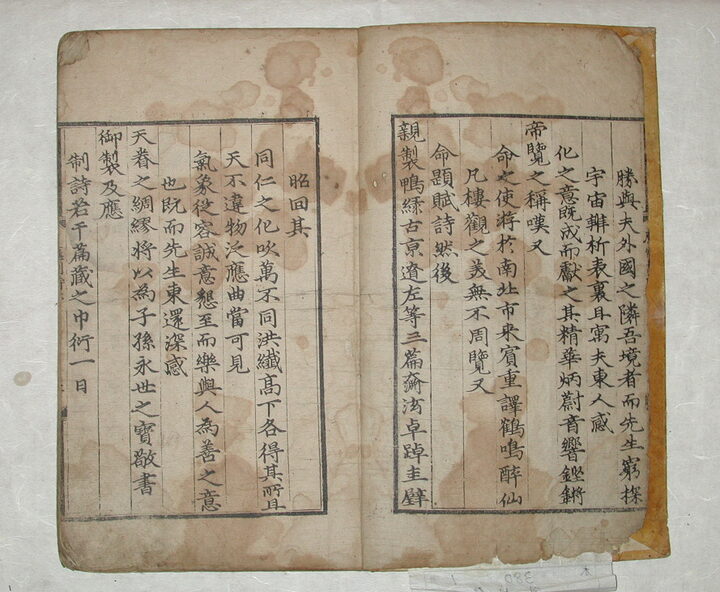 勝與夫外國之隣吾境者而先生窮探
宇宙辨析表裏且寓夫東人感
化之意旣成而獻之其精華炳蔚音響鏗鏘
帝覽之稱嘆又
命之使游於南北市來賓重譯鶴鳴醉仙
凡樓觀之美無不周覽又
命題賦詩然後
親製鴨綠古京遼左等三篇奫泫卓踔圭璧
昭回其
同仁之化吹萬不同洪纖高下各得其所且
天不違物泛應曲當可見
氣象從容誠意懇至而樂與人為善之意
也既而先生東還深感
天眷之綢繆將以為子孫永世之寶敬書
御製及應
制詩若干篇藏之巾衍一日